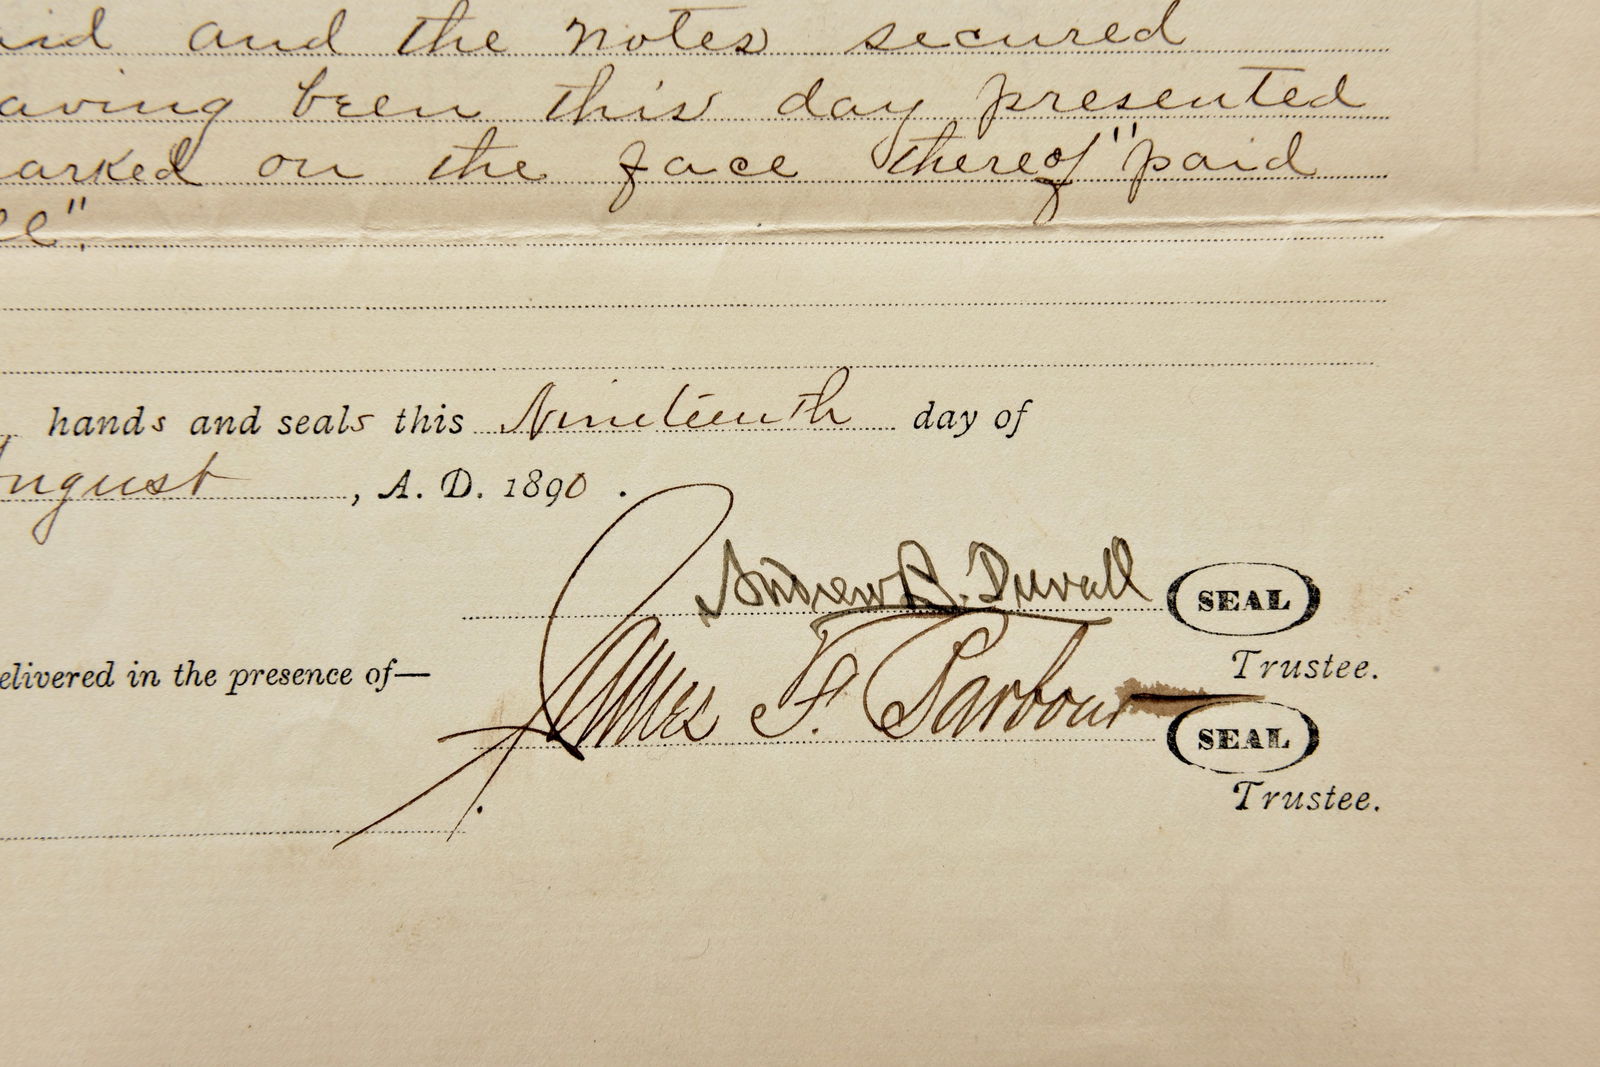 aid and the notes secured
aving been this day presented
arked on the face thereof "paid
ll".
hands and seals this Nineteenth day of
August, A. D. 1890.
Andrew B. Duvall SEAL
Trustee.
elivered in the presence of—
James F. Barbour SEAL
Trustee.